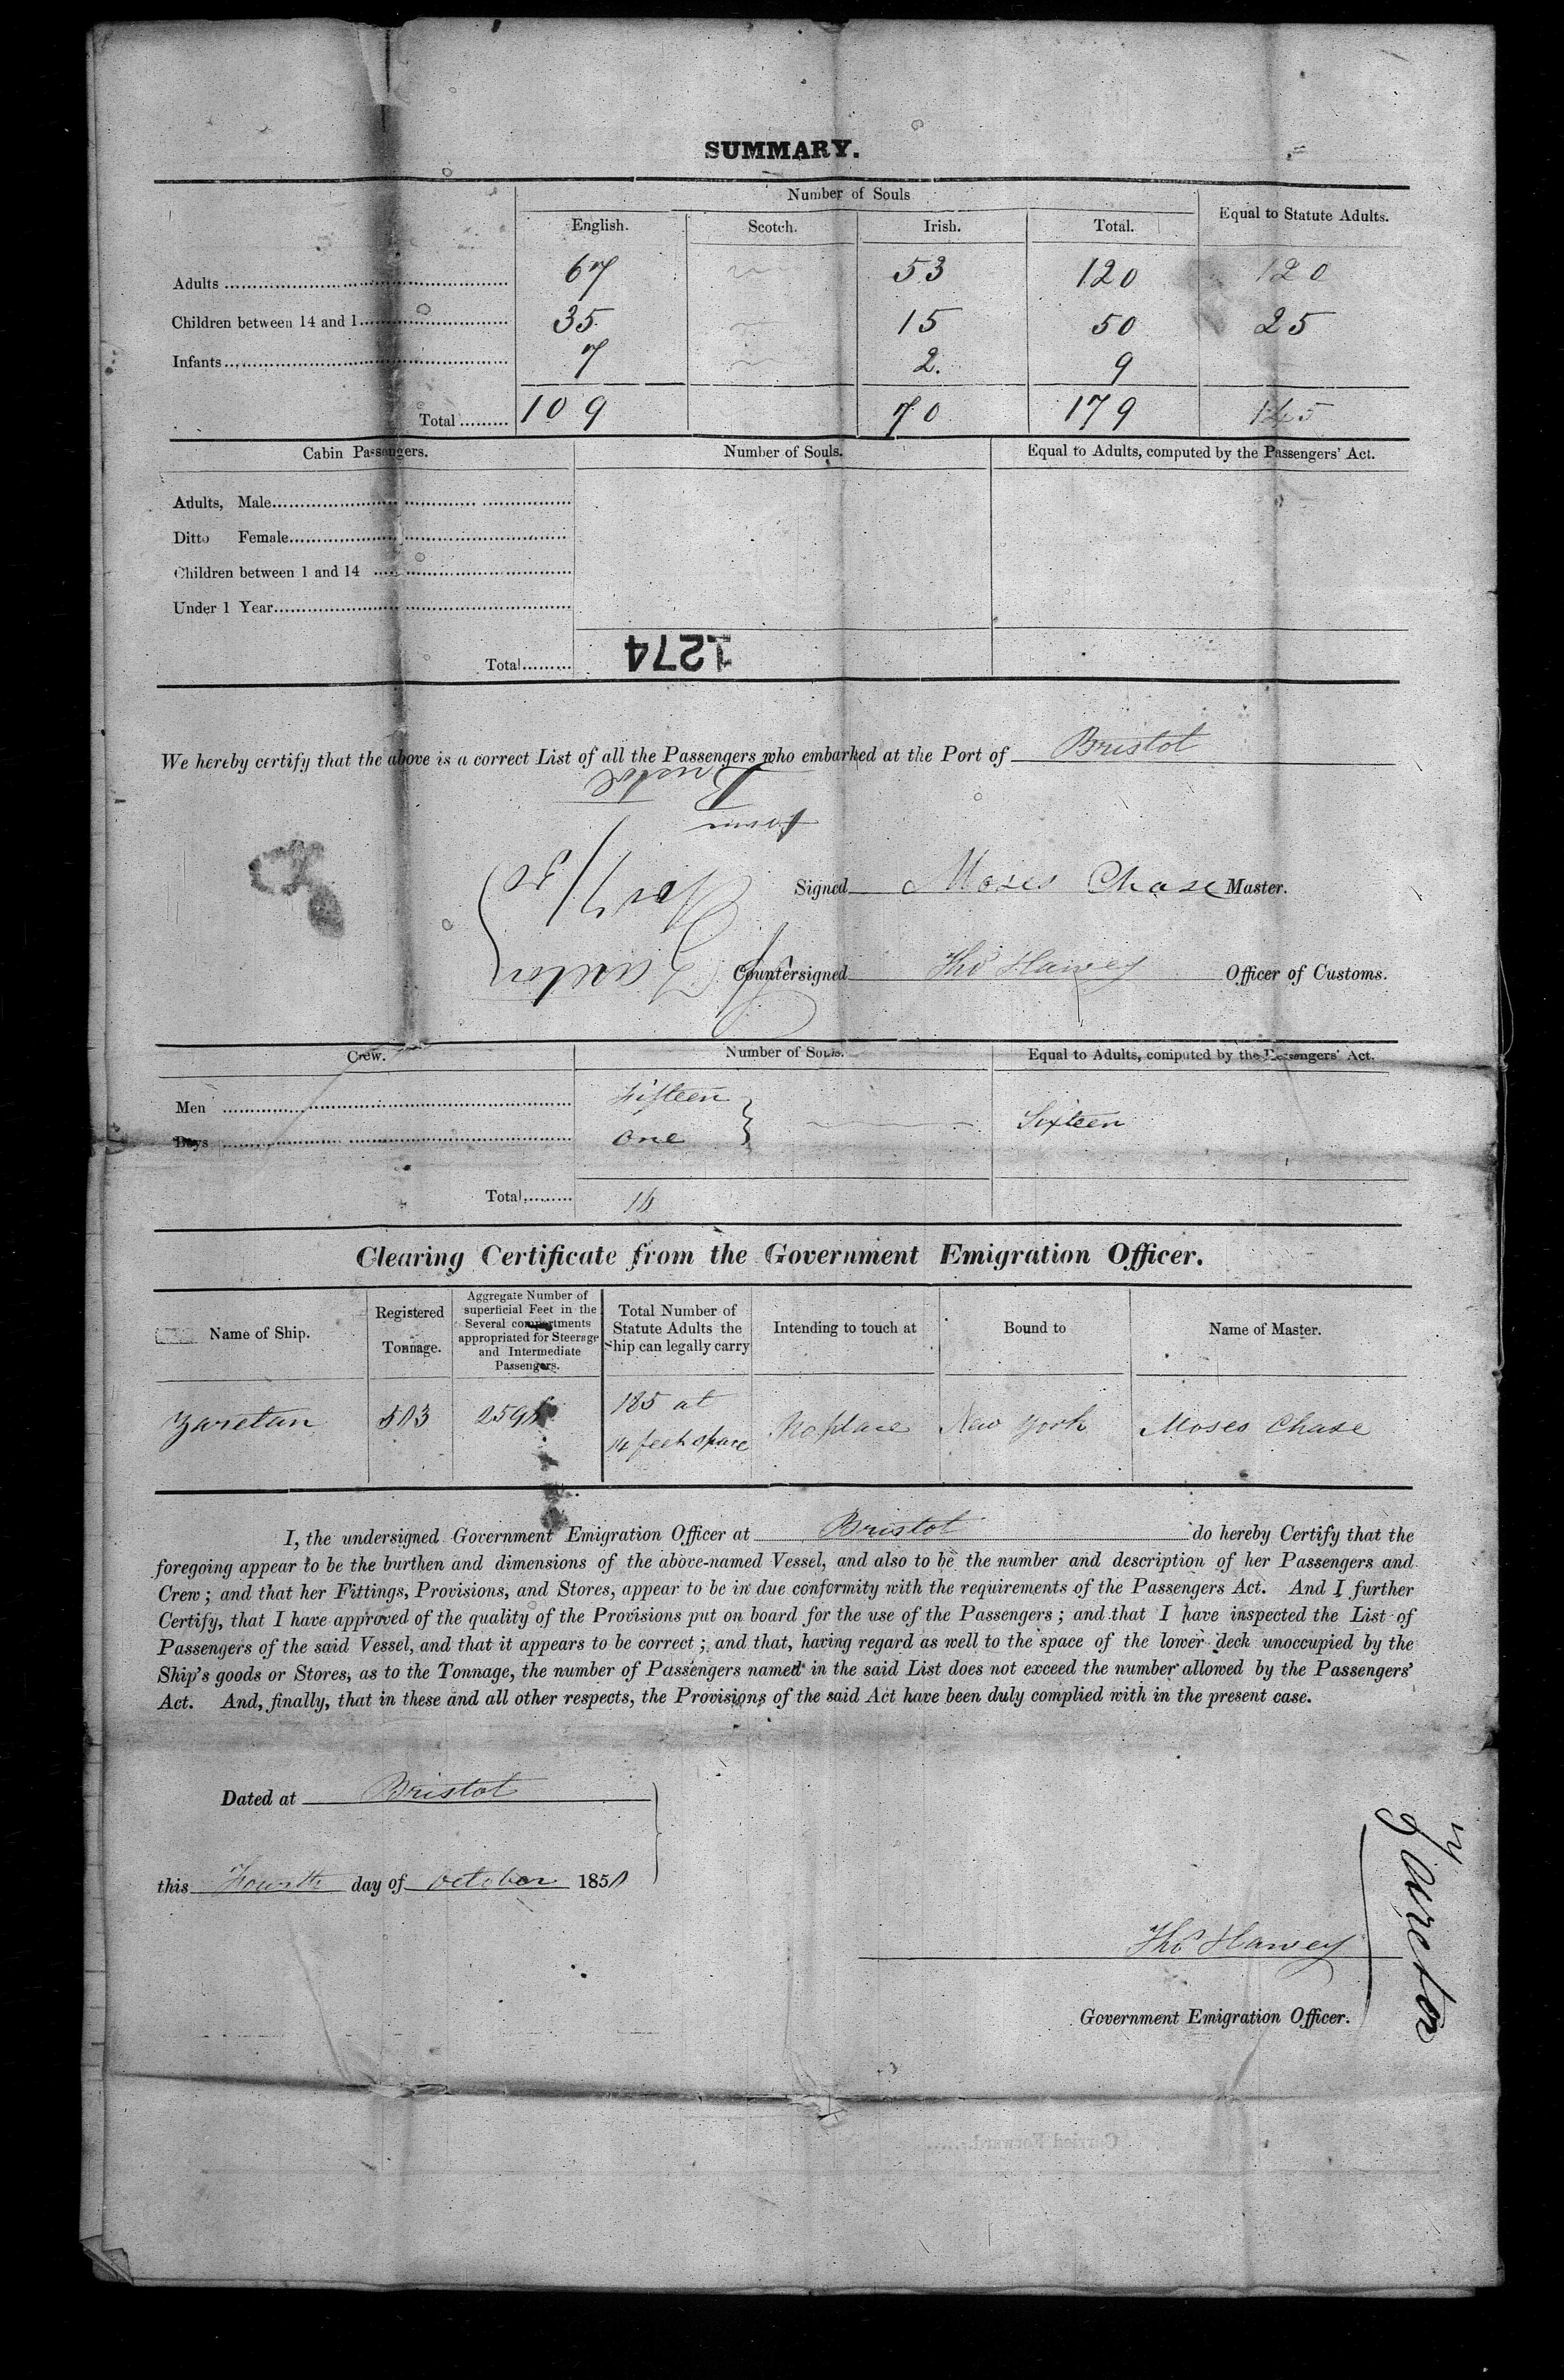 SUMMARY.
Number of Souls
English. Scotch. Irish. Total. Equal to Statute Adults.
Adults 67 53 120 120
Children between 14 and 1 35 15 50 25
Infants 7 2. 9
Total 109 70 179 145
Cabin Passengers. Number of Souls. Equal to Adults, computed by the Passengers' Act.
Adults, Male
Ditto Female
Children between 1 and 14
Under 1 Year
Total
1274
We hereby certify that the above is a correct List of all the Passengers who embarked at the Port of Bristol
Bristol
from
Signed Moses Chase Master.
Countersigned Thos Harvey Officer of Customs.
Crew. Number of Souls. Equal to Adults, computed by the Passengers' Act.
Men Fifteen
Boys One Sixteen
Total 16
Clearing Certificate from the Government Emigration Officer.
Name of Ship. Registered Tonnage. Aggregate Number of superficial Feet in the Several compartments appropriated for Steerage and Intermediate Passengers. Total Number of Statute Adults the Ship can legally carry Intending to touch at Bound to Name of Master.
Zaretan 503 185 at 14 feet space No place New York Moses Chase
I, the undersigned Government Emigration Officer at Bristol do hereby Certify that the
foregoing appear to be the burthen and dimensions of the above-named Vessel, and also to be the number and description of her Passengers and
Crew; and that her Fittings, Provisions, and Stores, appear to be in due conformity with the requirements of the Passengers Act. And I further
Certify, that I have approved of the quality of the Provisions put on board for the use of the Passengers; and that I have inspected the List of
Passengers of the said Vessel, and that it appears to be correct; and that, having regard as well to the space of the lower deck unoccupied by the
Ship's goods or Stores, as to the Tonnage, the number of Passengers named in the said List does not exceed the number allowed by the Passengers'
Act. And, finally, that in these and all other respects, the Provisions of the said Act have been duly complied with in the present case.
Dated at Bristol
this Fourth day of October 1850
Thos Harvey
Government Emigration Officer.
Carried Forward